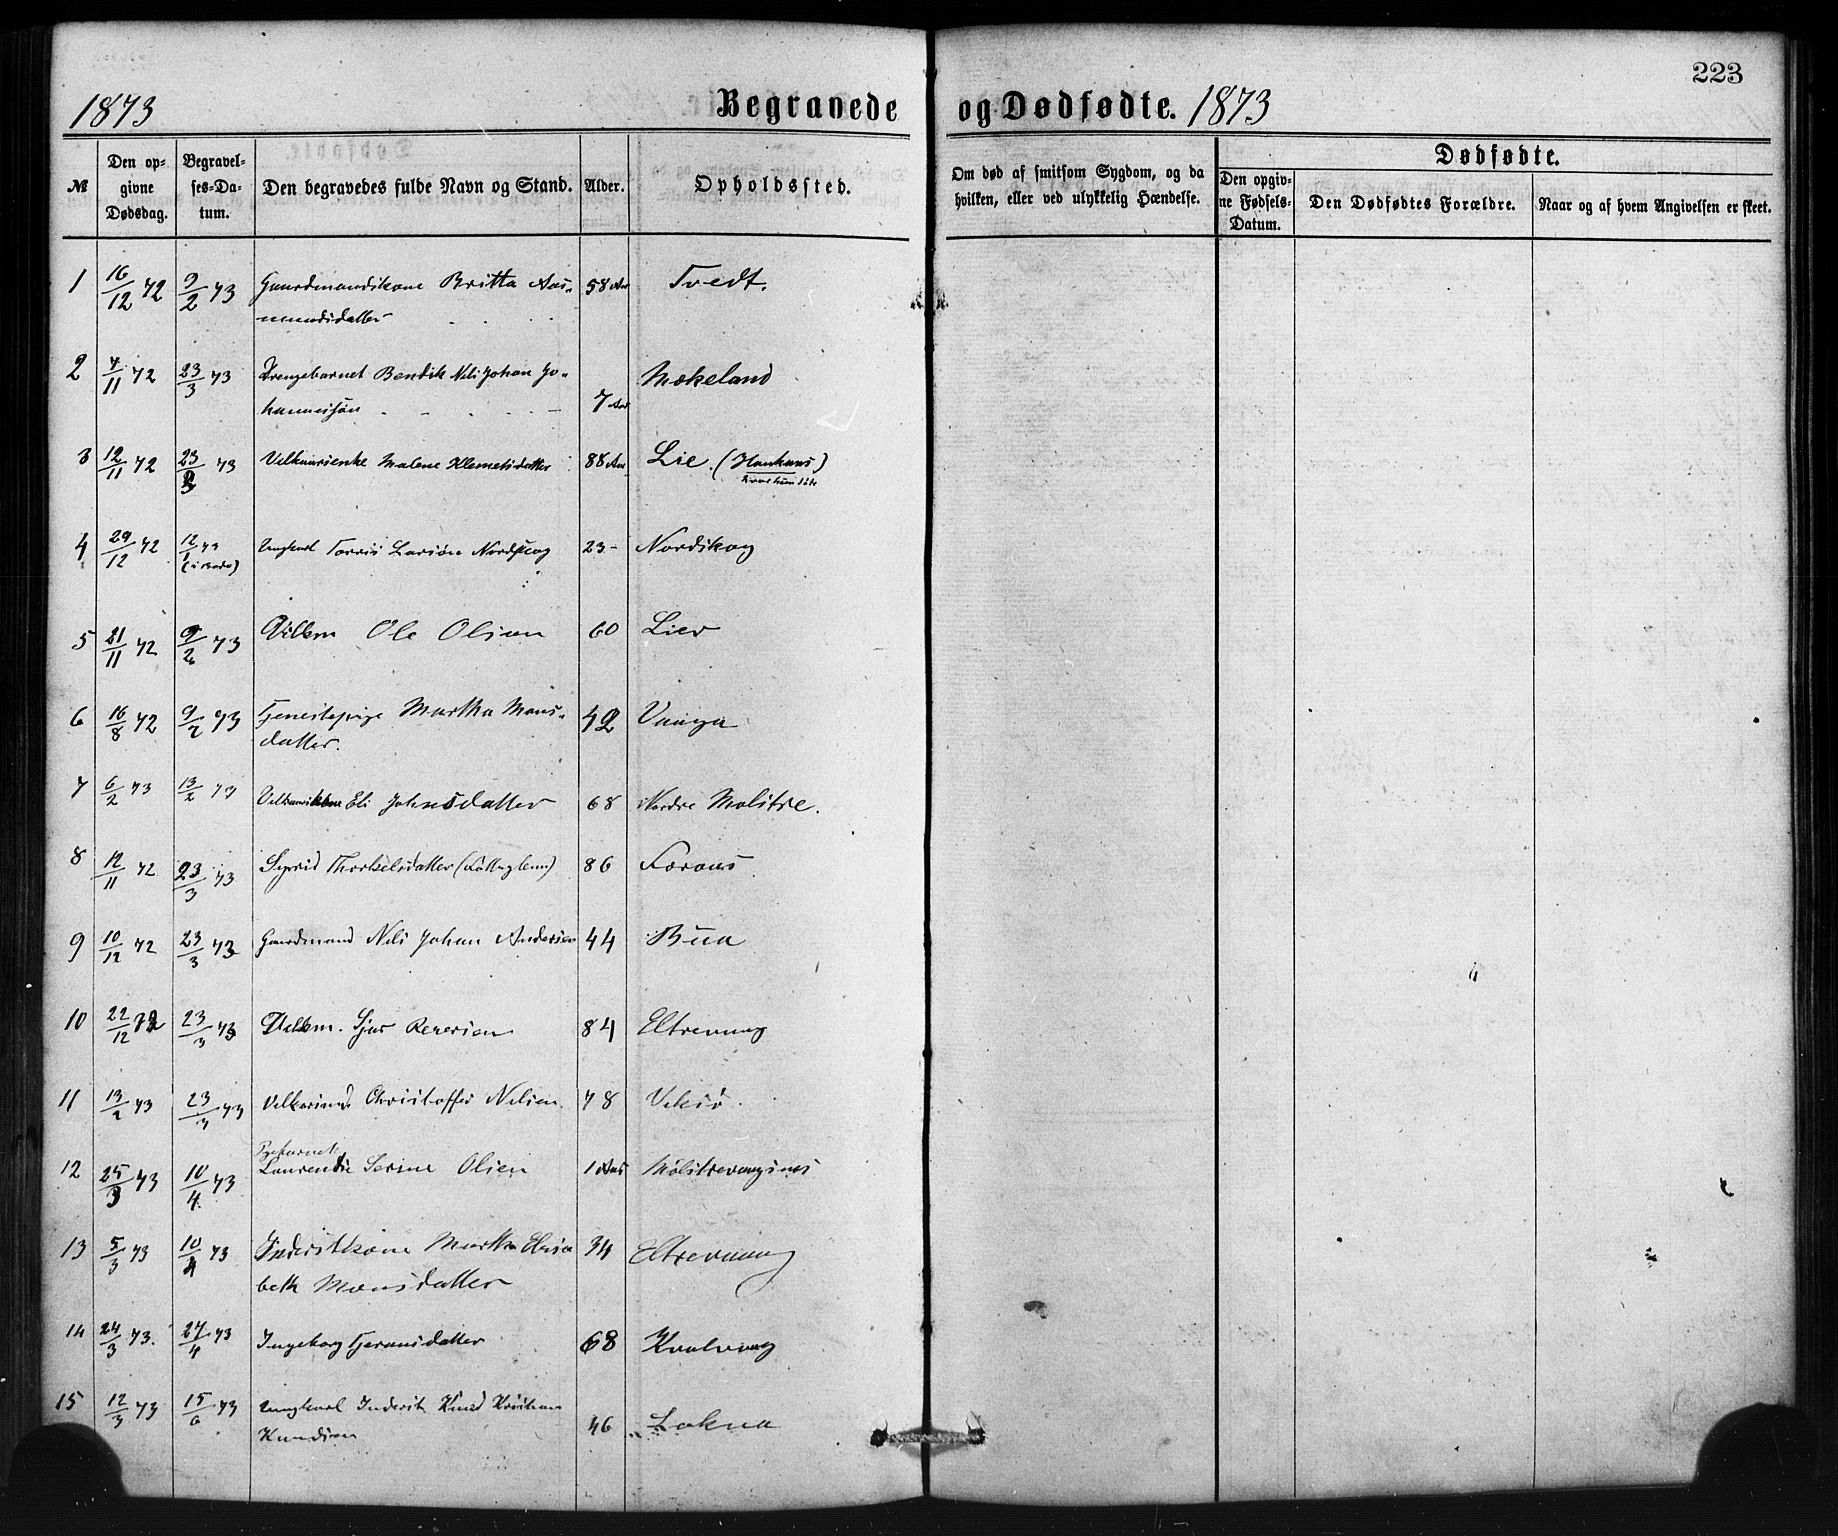 223
1873 Begravede og Dødfødte. 1873
№ Den opgivne Dødsdag. Begravelses-Datum. Den begravedes fulde Navn og Stand. Alder. Opholdssted. Om død af smitsom Sygdom, og da hvilken, eller ved ulykkelig Hændelse. Dødfødte. Den opgivne Fødsels-Datum. Den Dødfødtes Forældre. Naar og af hvem Angivelsen er skeet.
1 16/12 72 9/2 73 Gaardmandskone Britta Aas- 58 Aar Tvedt.
mundsdatter
2 7/11 72 23/3 73 Drengebarnet Bendik Nils Johan Jo- Mækeland
hannessøn 7 Aar
3 12/11 72 23/3 73 Malene Klemetsdatter 88 Aar Lie. (Haukaas)
4 29/12 72 12/1 73 Ungkarl Torris Larsøn Nordskog 23 - Nordskog
5 21/11 72 9/2 73 Vilkm Ole Olsen 60 Lier
6 16/8 72 9/2 73 Tjenestepige Martha Mons- 42 Vaaga
datter.
7 6/2 73 13/2 73 Eli Johnsdatter 68 Nordre Molstre.
8 12/11 72 23/3 73 Sigrid Thorkelsdatter 86
9 10/12 72 23/3 73 Gaardmand Nils Johan Andersen 44 Bua
10 22/12 72 23/3 73 Vilkm. Sjur 84 Eltrevaag
11 13/2 73 23/3 73 Christoffer Nilsen 78 Veksø
Pigebarnet
12 25/3 73 10/4 73 Serine Olsen 1 Aar
13 5/3 73 10/4 73 Inderstkone Martha Elisa- 34 Eltrevaag
beth Monsdatter
14 24/3 73. 27/4 73 Ingeborg 68 Kvalvaag
15 12/3 73 15/6 73 Ungkarl Inderst Knud Kristian
Knudsen 46 Løkna